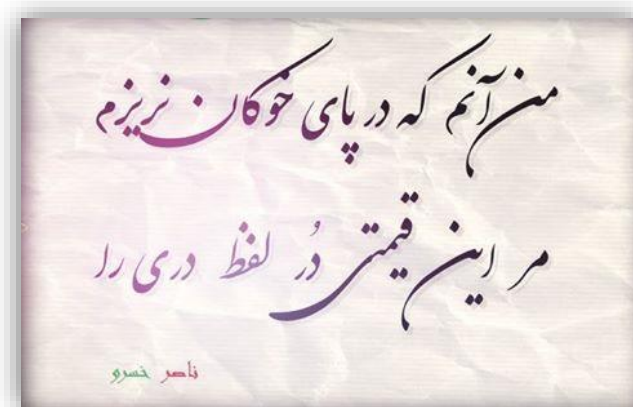 من آنم که در پای خوکان نریزم
مر این قیمتی دُر لفظ دری را
ناصر خسرو